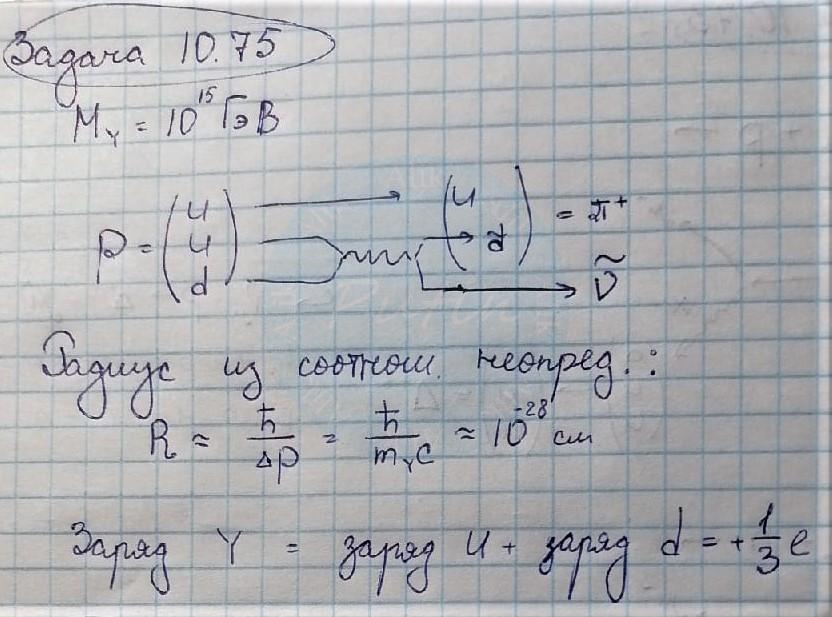 Задача 10.75
M_Y = 10^15 ГэВ
p = (u u d) (u d̃) = π⁺
ν̃
Радиус из соотнош. неопред.:
R ≈ ħ/Δp = ħ/(m_Y c) ≈ 10^-28 см
Заряд Y = заряд u + заряд d = + 1/3 e